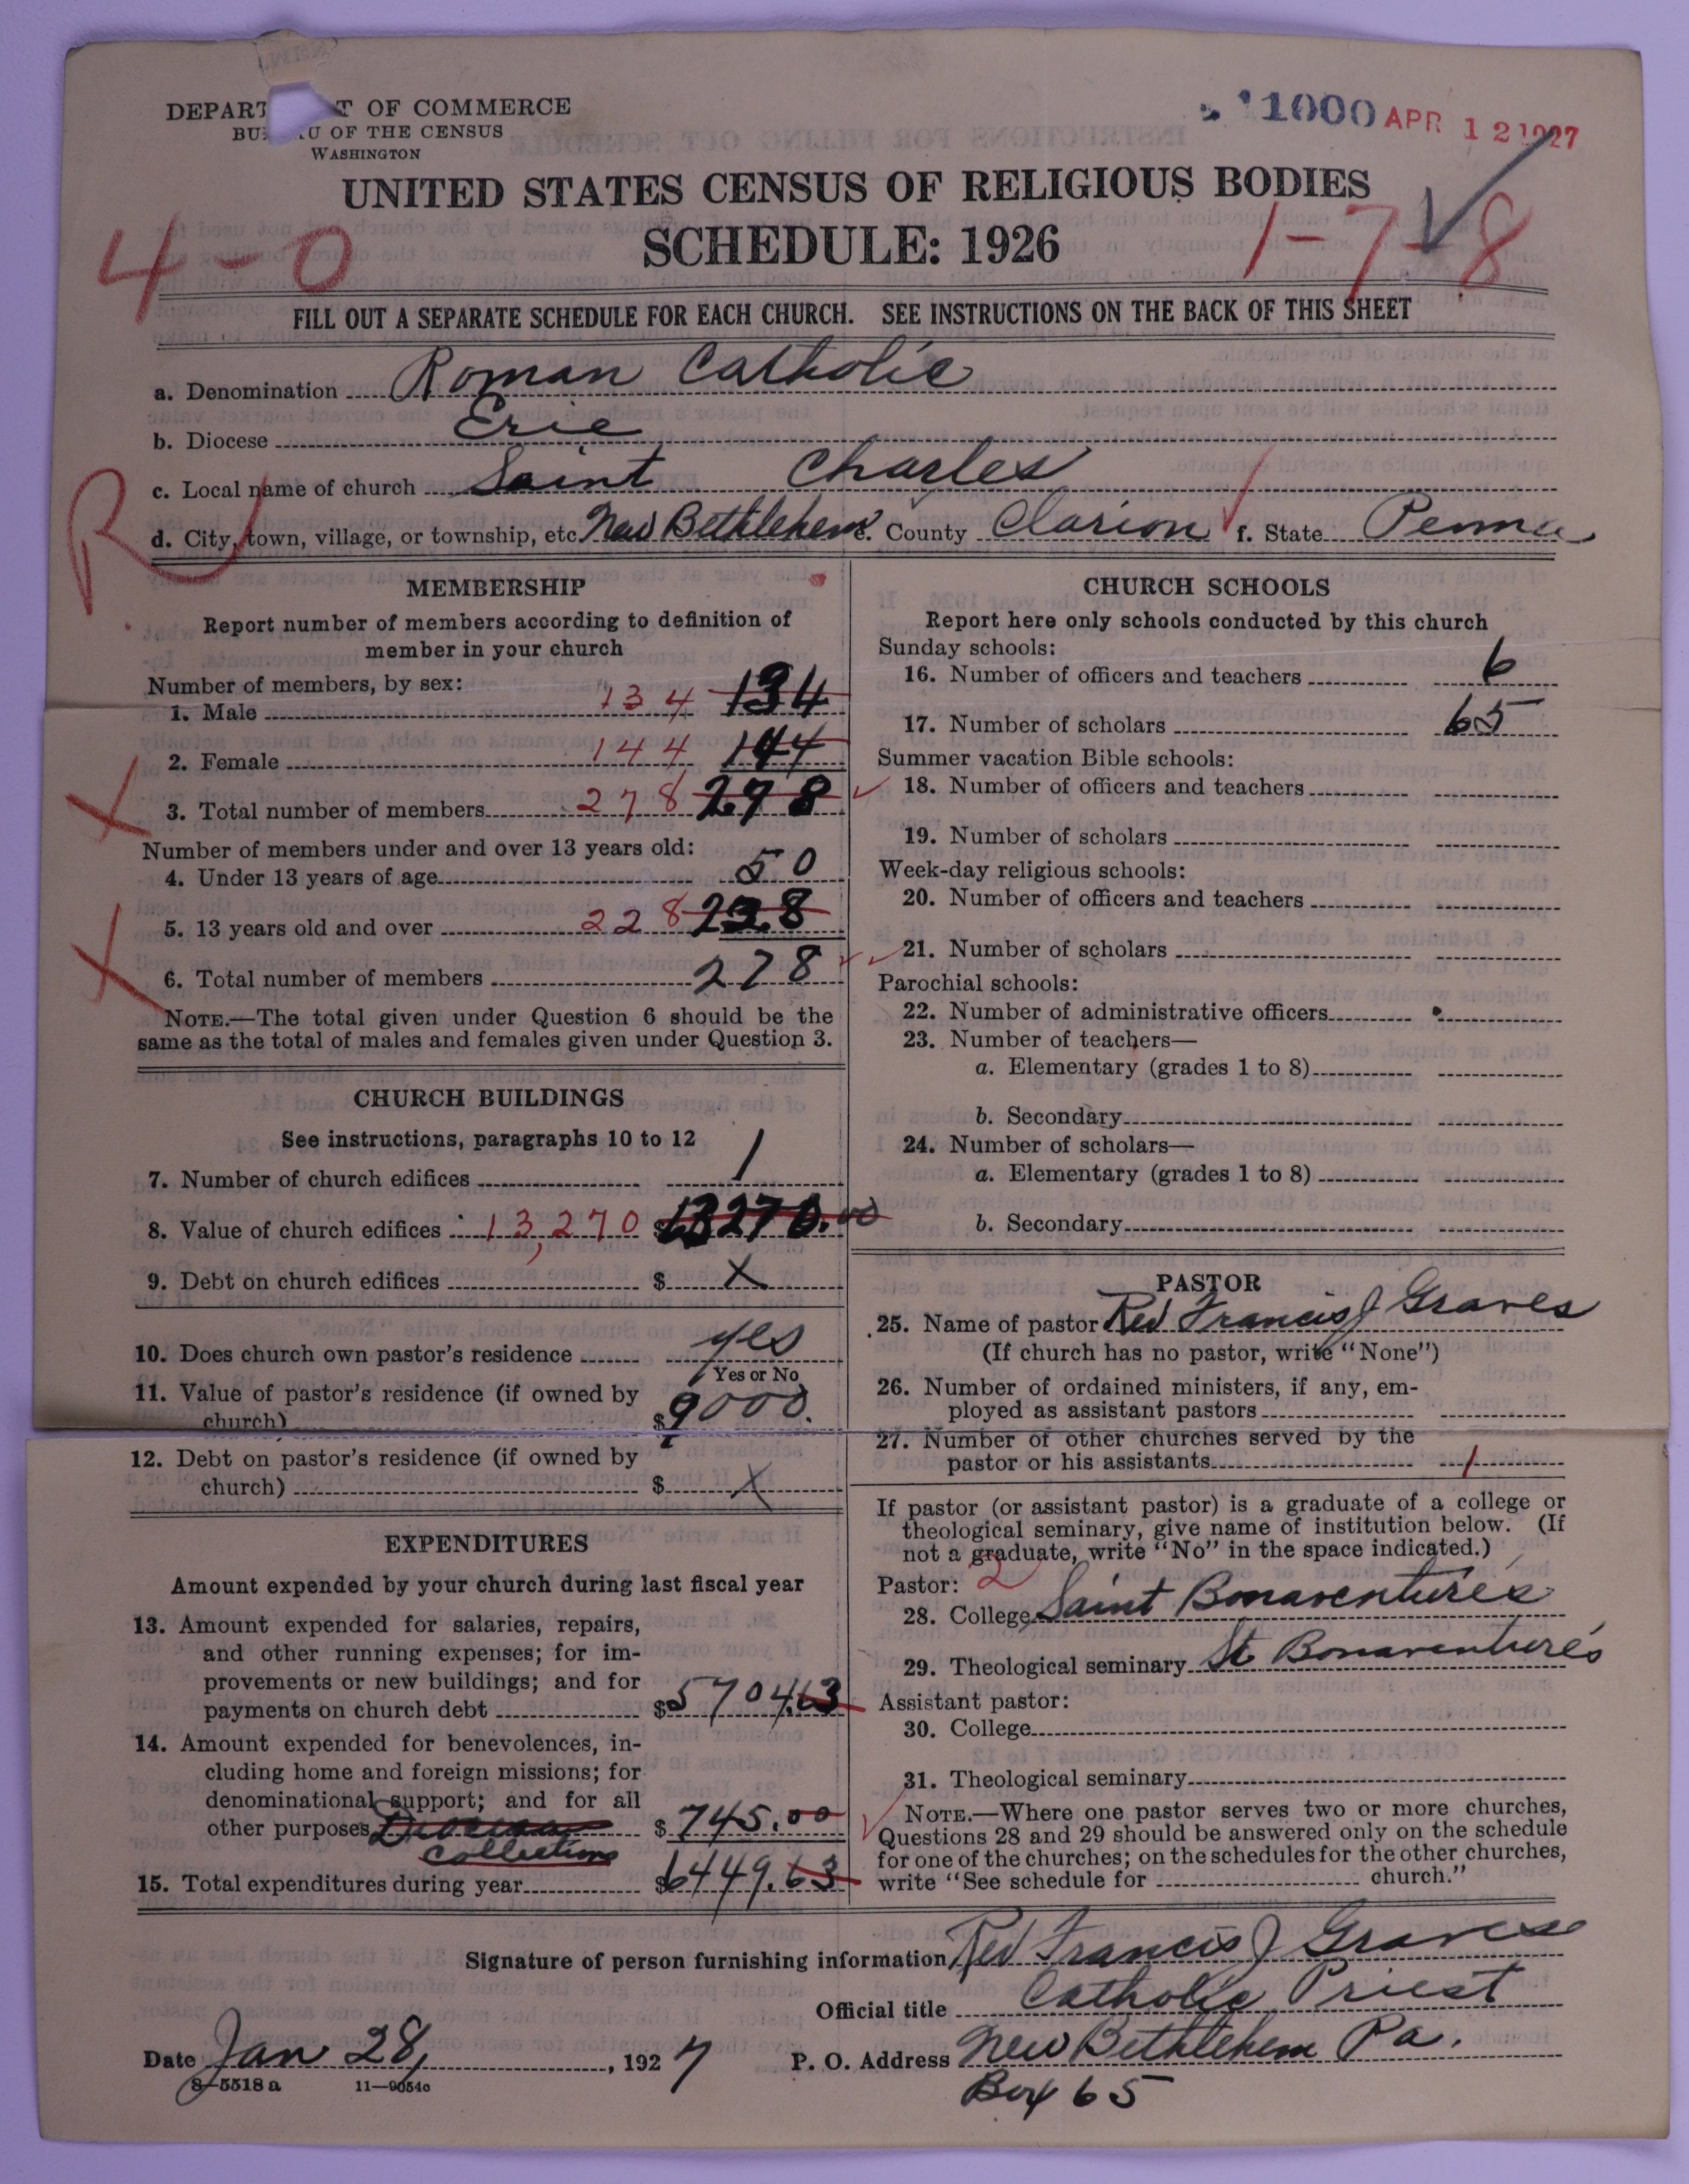 DEPART T OF COMMERCE
BU U OF THE CENSUS
WASHINGTON
11000 APR 12 1927
UNITED STATES CENSUS OF RELIGIOUS BODIES
SCHEDULE: 1926
4-0
1-7-8
FILL OUT A SEPARATE SCHEDULE FOR EACH CHURCH. SEE INSTRUCTIONS ON THE BACK OF THIS SHEET
a. Denomination Roman Catholic
b. Diocese Erie
c. Local name of church Saint Charles
R
d. City, town, village, or township, etc. New Bethlehem e. County Clarion f. State Penna
MEMBERSHIP
Report number of members according to definition of
member in your church
Number of members, by sex:
1. Male 134 134
2. Female 144 144
3. Total number of members 278 278
Number of members under and over 13 years old:
4. Under 13 years of age 50
5. 13 years old and over 228 228
6. Total number of members 278
NOTE.—The total given under Question 6 should be the
same as the total of males and females given under Question 3.
CHURCH BUILDINGS
See instructions, paragraphs 10 to 12
7. Number of church edifices 1
8. Value of church edifices 13,270 $13270.00
9. Debt on church edifices $ X
10. Does church own pastor's residence yes
Yes or No
11. Value of pastor's residence (if owned by
church) $9000.
12. Debt on pastor's residence (if owned by
church) $ X
EXPENDITURES
Amount expended by your church during last fiscal year
13. Amount expended for salaries, repairs,
and other running expenses; for im-
provements or new buildings; and for
payments on church debt $5704.63
14. Amount expended for benevolences, in-
cluding home and foreign missions; for
denominational support; and for all
other purposes Diocesan $745.00
collections
15. Total expenditures during year $6449.63
CHURCH SCHOOLS
Report here only schools conducted by this church
Sunday schools:
16. Number of officers and teachers 6
17. Number of scholars 65
Summer vacation Bible schools:
18. Number of officers and teachers
19. Number of scholars
Week-day religious schools:
20. Number of officers and teachers
21. Number of scholars
Parochial schools:
22. Number of administrative officers
23. Number of teachers—
a. Elementary (grades 1 to 8)
b. Secondary
24. Number of scholars—
a. Elementary (grades 1 to 8)
b. Secondary
PASTOR
25. Name of pastor Rev Francis J Graves
(If church has no pastor, write "None")
26. Number of ordained ministers, if any, em-
ployed as assistant pastors
27. Number of other churches served by the
pastor or his assistants 1
If pastor (or assistant pastor) is a graduate of a college or
theological seminary, give name of institution below. (If
not a graduate, write "No" in the space indicated.)
Pastor: 2
28. College Saint Bonaventure's
29. Theological seminary St Bonaventure's
Assistant pastor:
30. College
31. Theological seminary
NOTE.—Where one pastor serves two or more churches,
Questions 28 and 29 should be answered only on the schedule
for one of the churches; on the schedules for the other churches,
write "See schedule for church."
Signature of person furnishing information Rev Francis J Graves
Official title Catholic Priest
Date Jan 28, 1927 P. O. Address New Bethlehem Pa.
8—5518 a 11—9054c Box 65